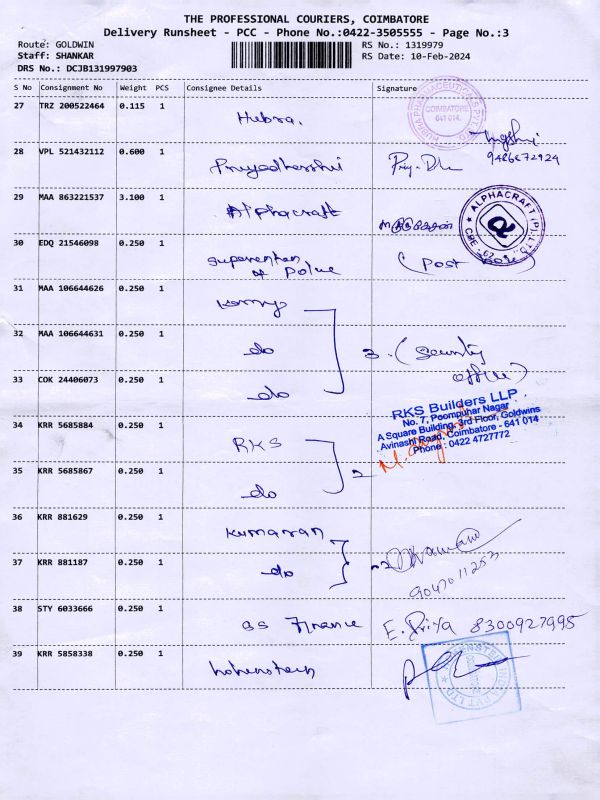 THE PROFESSIONAL COURIERS, COIMBATORE
Delivery Runsheet - PCC - Phone No.:0422-3505555 - Page No.:3
Route: GOLDWIN
Staff: SHANKAR
DRS No.: DCJB131997903
RS No.: 1319979
RS Date: 10-Feb-2024
S No Consignment No Weight PCS Consignee Details Signature
27 TRZ 200522464 0.115 1 Hubra.
COIMBATORE
641 014.
9486672924
28 VPL 521432112 0.600 1 Priyadharshini Priya.Dh
29 MAA 863221537 3.100 1 Alphacraft
ALPHACRAFT (P) LTD
CBE - 62
30 EDQ 21546098 0.250 1 Superenten of Police (Post
31 MAA 106644626 0.250 1
32 MAA 106644631 0.250 1 do 3. (Security
office)
33 COK 24406073 0.250 1 do
RKS Builders LLP
No. 7, Poompuhar Nagar
A Square Building, 3rd Floor, Goldwins
Avinashi Road, Coimbatore - 641 014
Phone : 0422 4727772
34 KRR 5685884 0.250 1 RKS
2
35 KRR 5685867 0.250 1 do
36 KRR 881629 0.250 1 Kumaran
37 KRR 881187 0.250 1 do 2
9047011253
38 STY 6033666 0.250 1 Finance E. Priya 8300927995
39 KRR 5858338 0.250 1 hohenstein